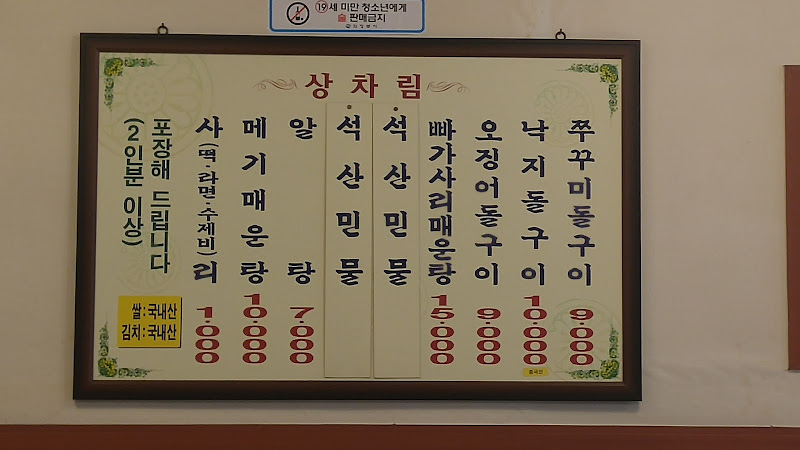 19세 미만 청소년에게
술 판매금지
상차림
쭈꾸미돌구이 9.000
낙지돌구이 10.000
오징어돌구이 9.000
빠가사리매운탕 15.000
석산민물
석산민물
알탕 7.000
메기매운탕 10.000
사(떡·라면·수제비)리 1.000
포장해 드립니다
(2인분 이상)
쌀:국내산
김치:국내산
중국산